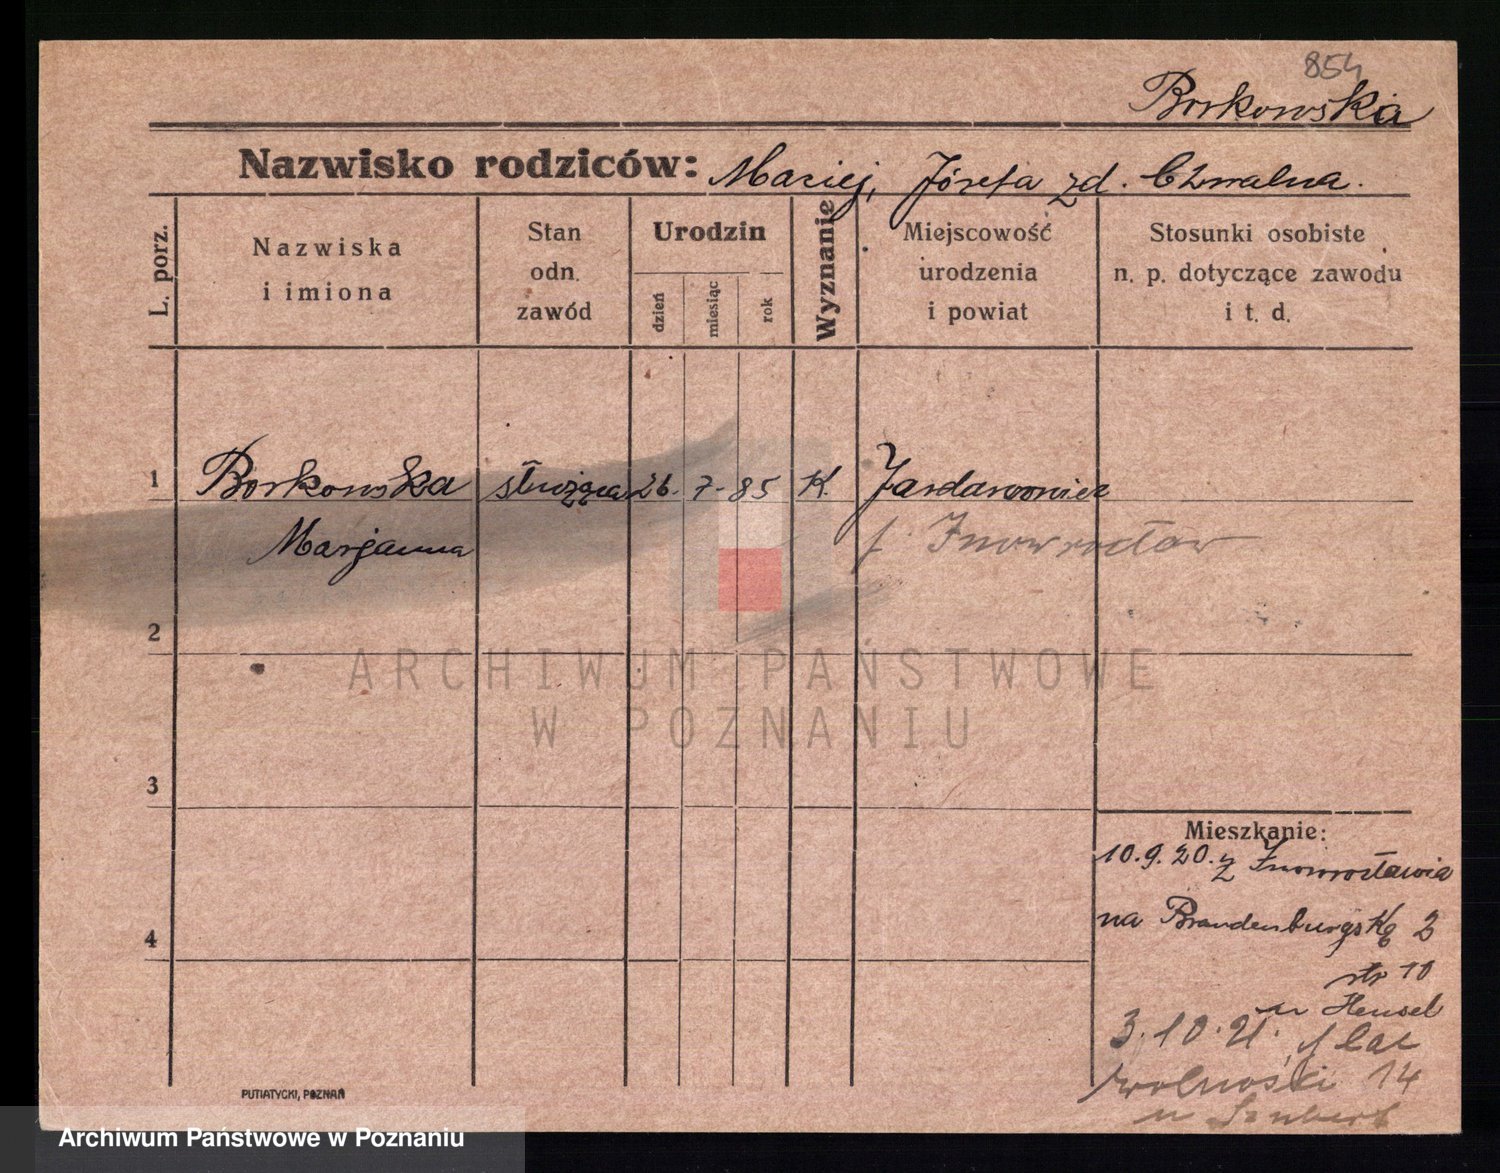 854
Borkowska
Nazwisko rodziców: Maciej, Józefa zd. Czwalna.
L. porz.
Nazwiska
i imiona
Stan
odn.
zawód
Urodzin
dzień
miesiąc
rok
Wyznanie
Miejscowość
urodzenia
i powiat
Stosunki osobiste
n. p. dotyczące zawodu
i t. d.
1 Borkowska służąca 26. 7. 85 K.
Marjanna
Inowrocław
2
ARCHIWUM PAŃSTWOWE
W POZNANIU
3
Mieszkanie:
10.9.20. z Inowrocławia
na Brandenburgską 2
4
str 10
Hensel
3.10.21.
wolności 14
PUTIATYCKI, POZNAŃ
Archiwum Państwowe w Poznaniu